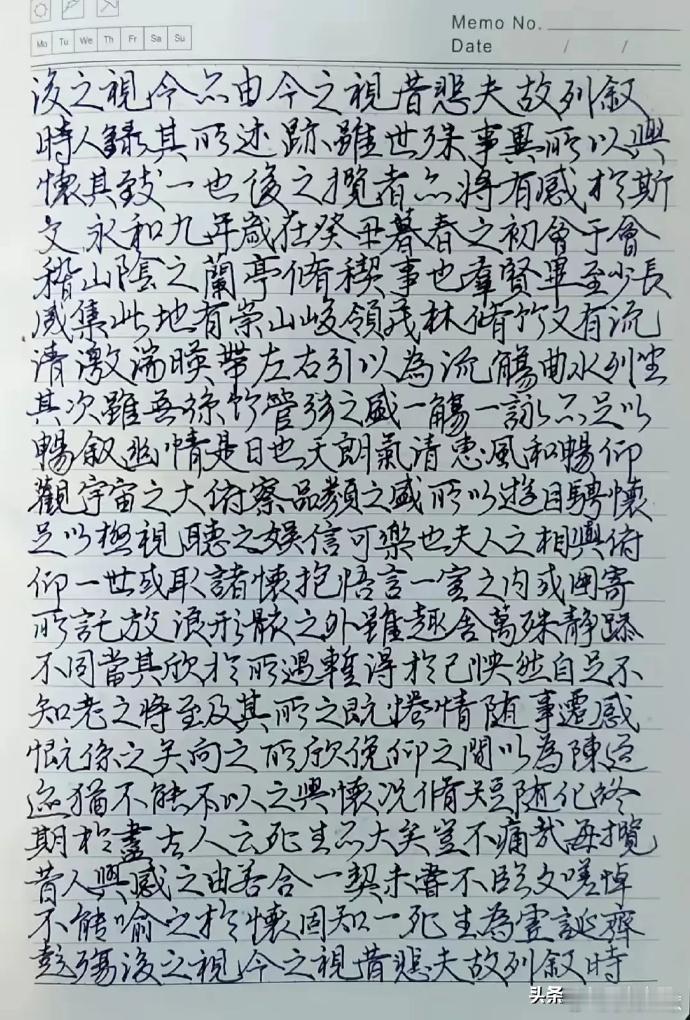 Memo No.
Date / /
Mo Tu We Th Fr Sa Su
後之視今亦由今之視昔悲夫故列叙
時人錄其所述跡雖世殊事異所以興
懷其致一也後之攬者亦將有感於斯
文永和九年歲在癸丑暮春之初會于會
稽山陰之蘭亭脩稧事也羣賢畢至少長
咸集此地有崇山峻領茂林脩竹又有流
清激湍暎帶左右引以為流觴曲水列坐
其次雖無絲竹管弦之盛一觴一詠亦足以
暢叙幽情是日也天朗氣清惠風和暢仰
觀宇宙之大俯察品類之盛所以遊目騁懷
足以極視聽之娛信可樂也夫人之相與俯
仰一世或取諸懷抱悟言一室之内或因寄
所託放浪形骸之外雖趣舍萬殊静躁
不同當其欣於所遇暫得於己怏然自足不
知老之将至及其所之既惓情随事遷感
慨係之矣向之所欣俛仰之間以為陳迹
猶不能不以之興懷况脩短随化終
期於盡古人云死生亦大矣豈不痛哉每攬
昔人興感之由若合一契未嘗不臨文嗟悼
不能喻之於懷固知一死生為虛誕齊
彭殤後之視今之視昔悲夫故列叙時
头条